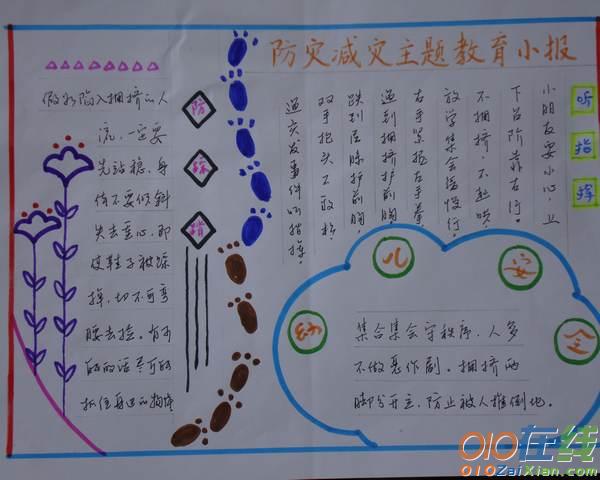 防灾减灾主题教育小报
假如陷入拥挤的人
流,一定要
先站稳,身
体不要倾斜
失去重心,即
使鞋子被踩
掉,切不可弯
腰去捡。有可
能的话尽可能
抓住身边的物体
防踩
听指挥
小朋友要小心,上
下台阶靠右行。
不拥挤,不起哄,
放学集会缓慢行。
右手紧抱左手拳,
遇到拥挤护前胸,
跌到屈膝护前胸,
双手抱头不敢松,
遇突发事件听指挥。
幼儿安全
集合集会守秩序,人多
不做恶作剧。拥挤两
脚分开立,防止被人推倒地。
010在线
010ZaiXian.com